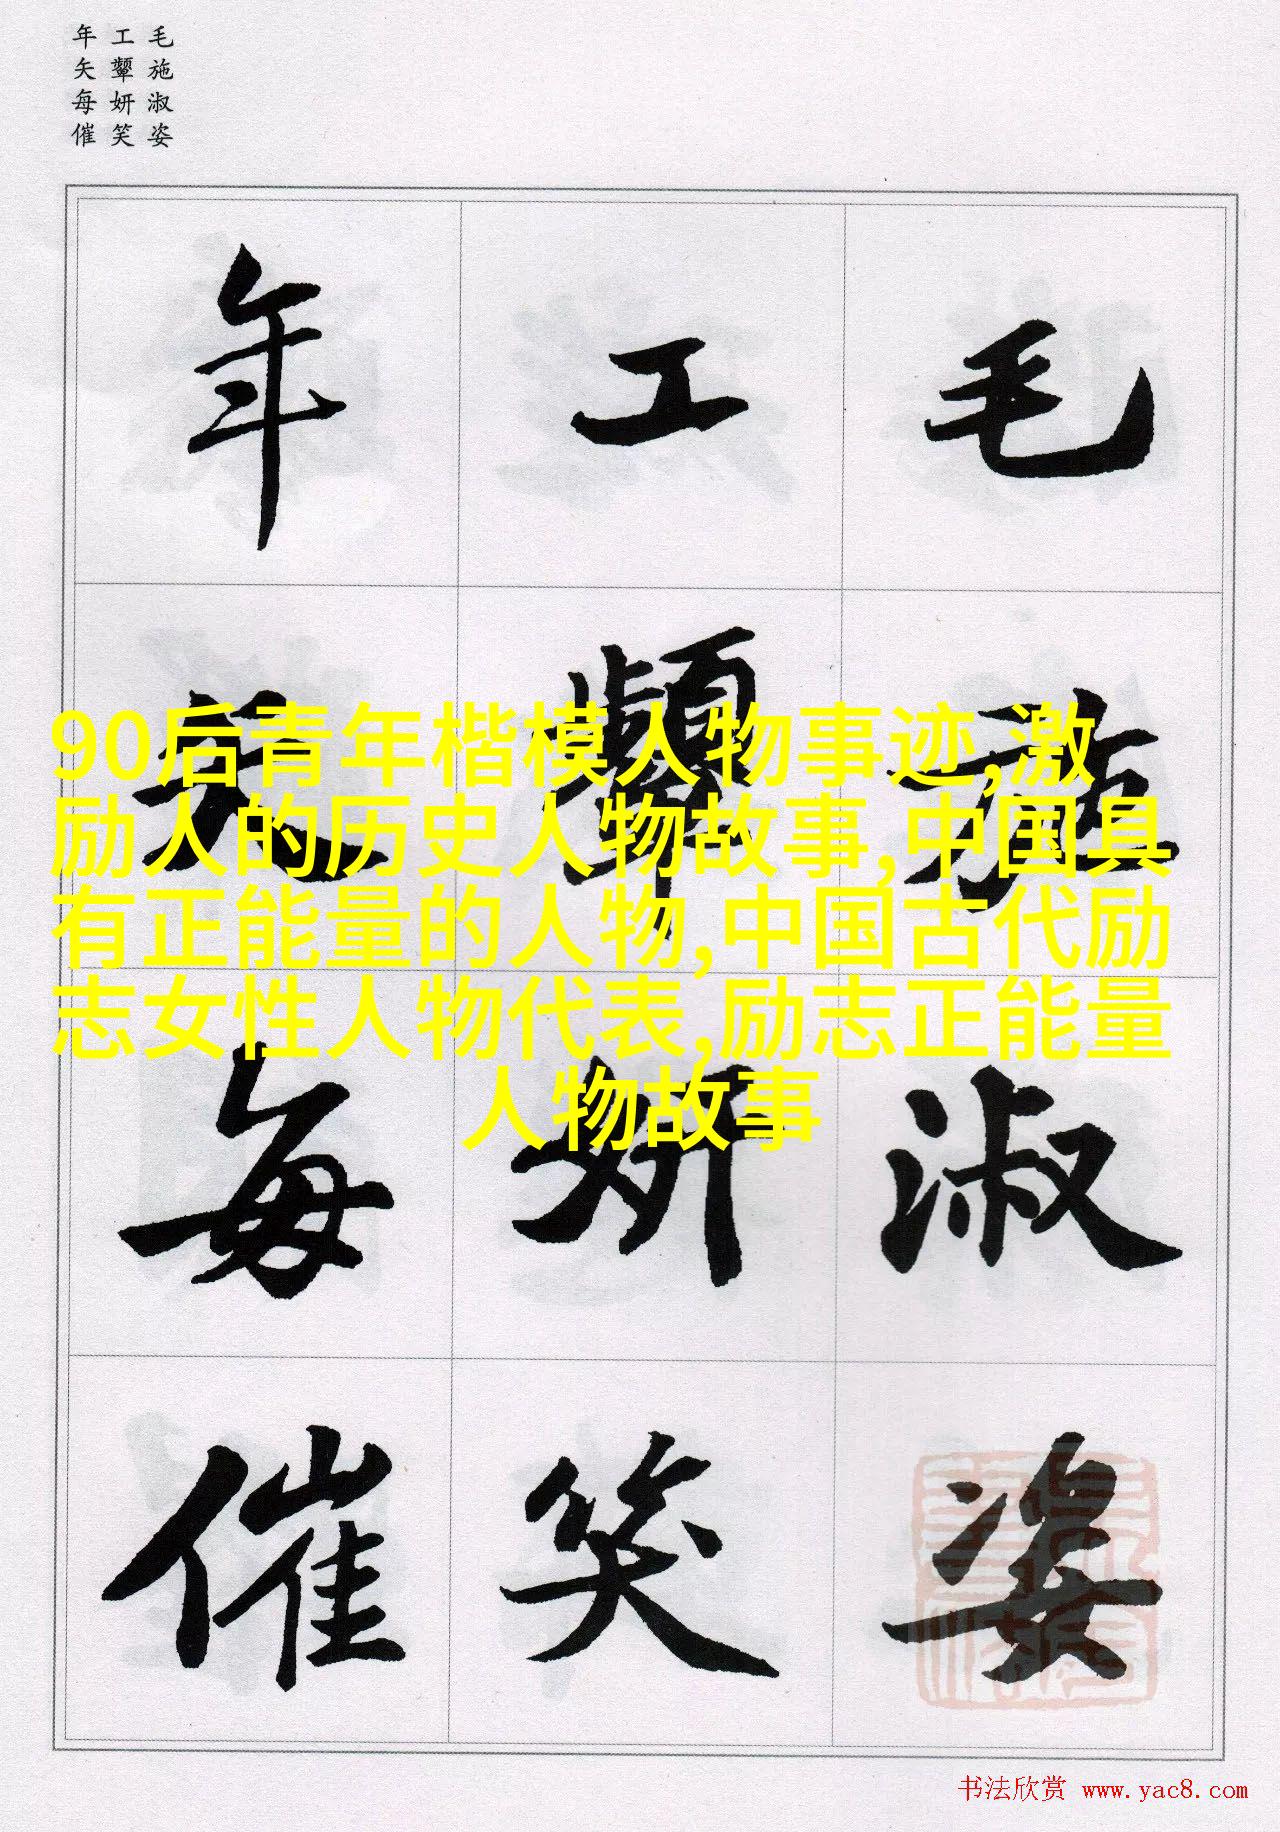 毛施淑姿
工颦妍笑
年矢每催
毛施淑姿
工颦妍笑
年矢每催
90后青年楷模人物事迹,激
励人的历史人物故事,中国具
有正能量的人物,中国古代励
志女性人物代表,励志正能量
人物故事
书法欣赏 www.yac8.com